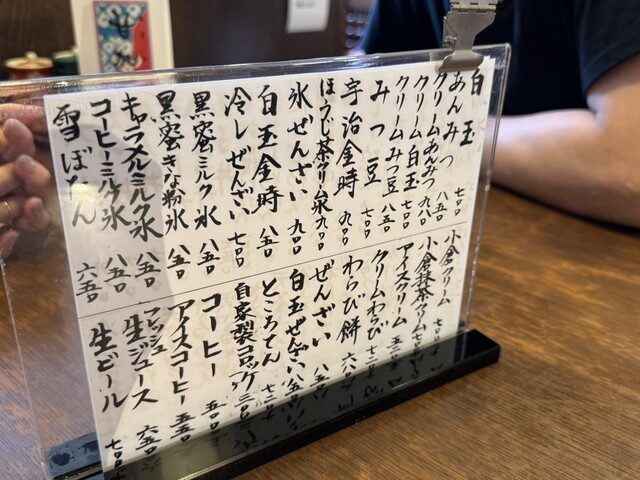 白玉 七〇〇
あんみつ 八五〇
クリームあんみつ 九八〇
クリーム白玉
クリームみつ豆 八五〇
みつ豆 七〇〇
宇治金時 九〇〇
ほうじ茶クリーム 九〇〇
氷ぜんざい 九〇〇
白玉金時 八五〇
冷しぜんざい 七〇〇
黒蜜ミルク氷 八五〇
黒蜜きな粉氷 八五〇
キャラメルミルク氷 八五〇
コーヒーミルク氷 八五〇
雪ぼたん 六五〇
小倉クリーム
小倉抹茶クリーム
アイスクリーム
クリームわらび
わらび餅
ぜんざい
白玉ぜんざい
ところてん
自家製コロッケ
コーヒー 五〇〇
アイスコーヒー 五五〇
フレッシュ生ジュース 六五〇
生ビール 七〇〇